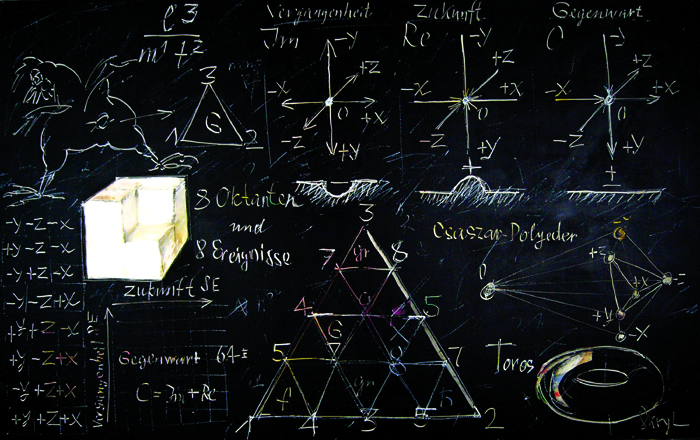 l3
m1 t2
3
1 G 2
Vergangenheit
Jm
-y
+z
-x
+x
0
-z
+y
Zukunft
Re
-y
+z
-x
+x
0
-z
+y
±
Gegenwart
C
-y
+z
-x
+x
0
-z
+y
±
8 Oktanten
und
8 Ereignisse
Zukunft SE
-y-z-x
+y-z-x
-y+z-x
-y-z+x
+y+z-x
+y-z+x
-y+z+x
+y+z+x
Vergangenheit
Gegenwart 64
C=Jm+Re
3
7 gr 8
4 5
G
5 8 7
f gn h
1 4 3 5 2
Csaszar-Polyeder
0
+z
+x
-z
+y
-x
Toros